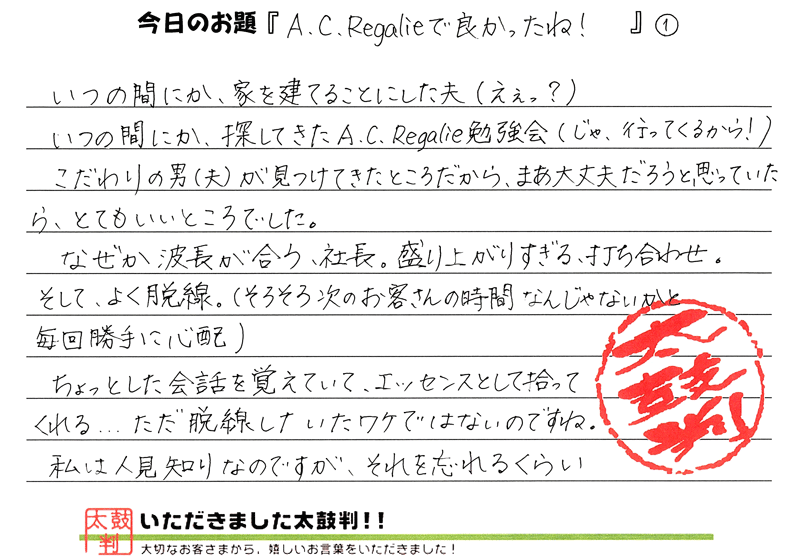 今日のお題『A.C.Regalieで良かったね! 』①
いつの間にか、家を建てることにした夫(えぇっ?)
いつの間にか、探してきたA.C.Regalie勉強会(じゃ、行ってくるから!)
こだわりの男(夫)が見つけてきたところだから、まあ大丈夫だろうと思っていた
ら、とてもいいところでした。
なぜか波長が合う、社長。盛り上がりすぎる、打ち合わせ。
そして、よく脱線。(そろそろ次のお客さんの時間なんじゃないかと
毎回勝手に心配)
ちょっとした会話を覚えていて、エッセンスとして拾って
くれる...ただ脱線していたワケではないのですね。
私は人見知りなのですが、それを忘れるくらい
太鼓判
太鼓判
いただきました太鼓判!!
大切なお客さまから、嬉しいお言葉をいただきました!